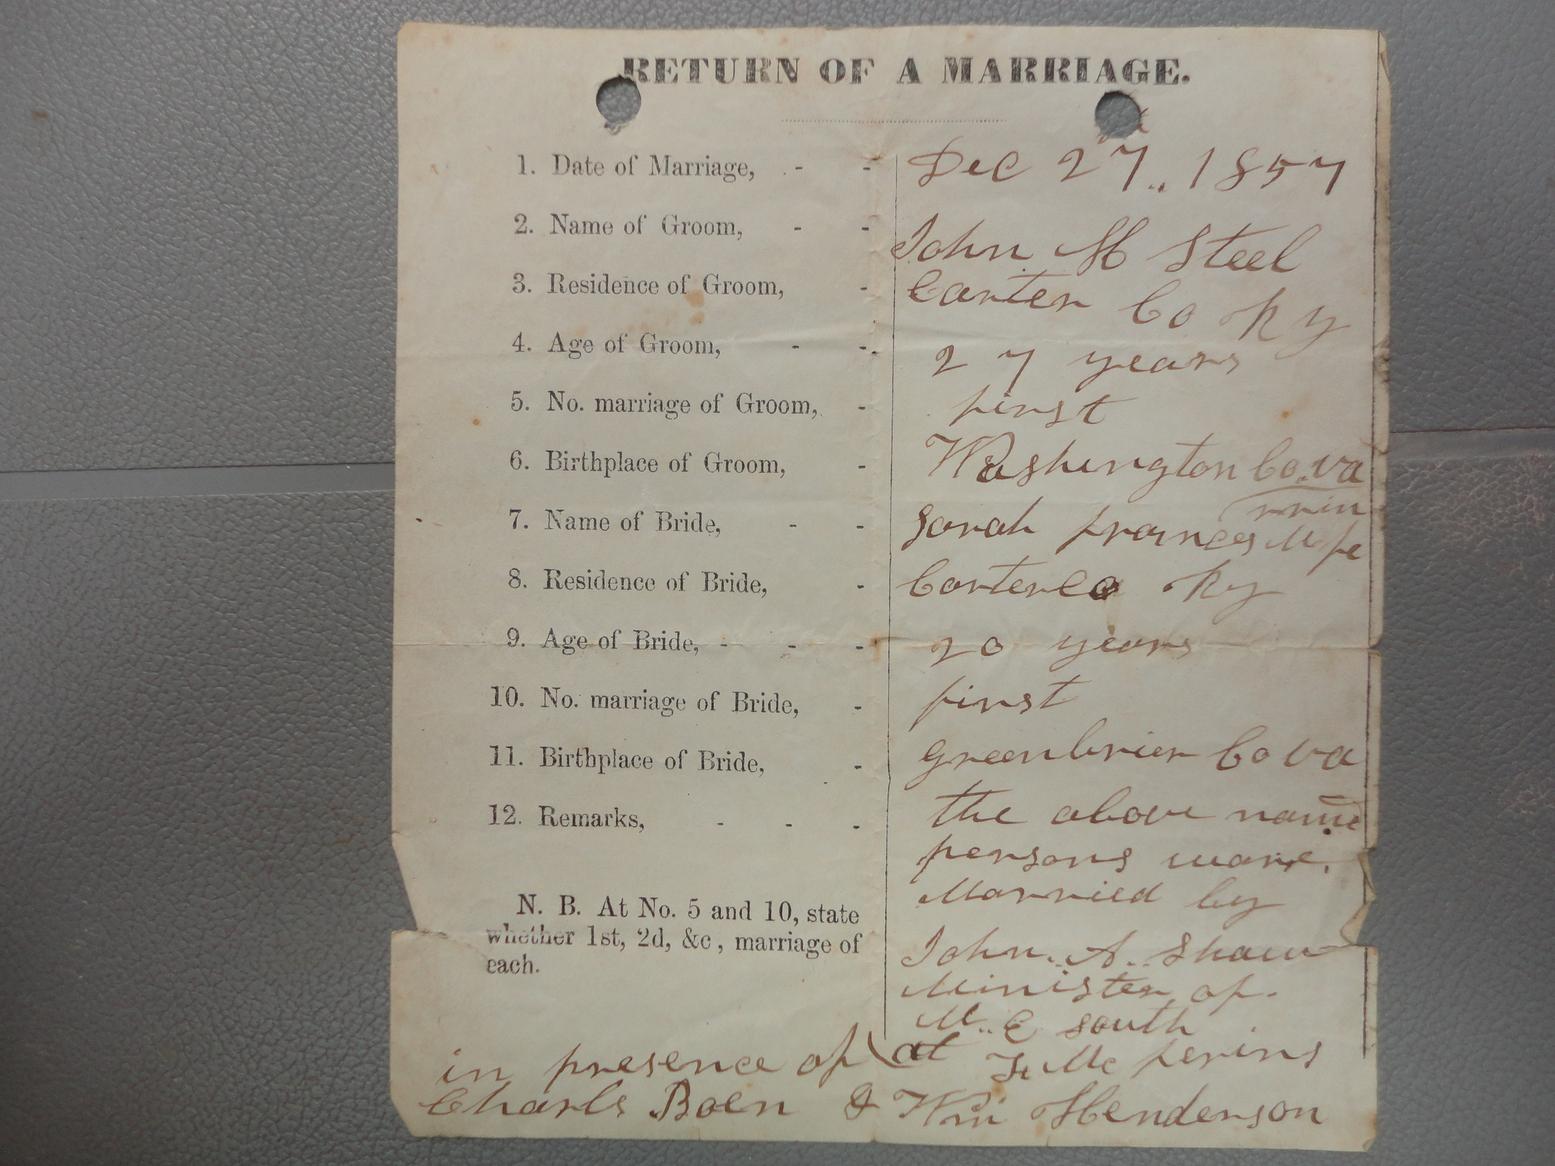 RETURN OF A MARRIAGE.
1. Date of Marriage, - - Dec 27,, 1857
2. Name of Groom, - - John H Steel
3. Residence of Groom, - Carter Co Ky
4. Age of Groom, - - 27 years
5. No. marriage of Groom, - first
6. Birthplace of Groom, - Washington Co. va
7. Name of Bride, - - Sarah frances Mc fe
rrin
8. Residence of Bride, - Carter Co Ky
9. Age of Bride, - - - 20 years
10. No. marriage of Bride, - first
11. Birthplace of Bride, - greenbrier Co va
12. Remarks, - - - the above name
persons ware.
Married by
N. B. At No. 5 and 10, state
whether 1st, 2d, &c, marriage of
each.
John. A. Shaw
Minister of.
M.. E South
at Mc ferins
in presence of
Charls Boen & Wm Henderson